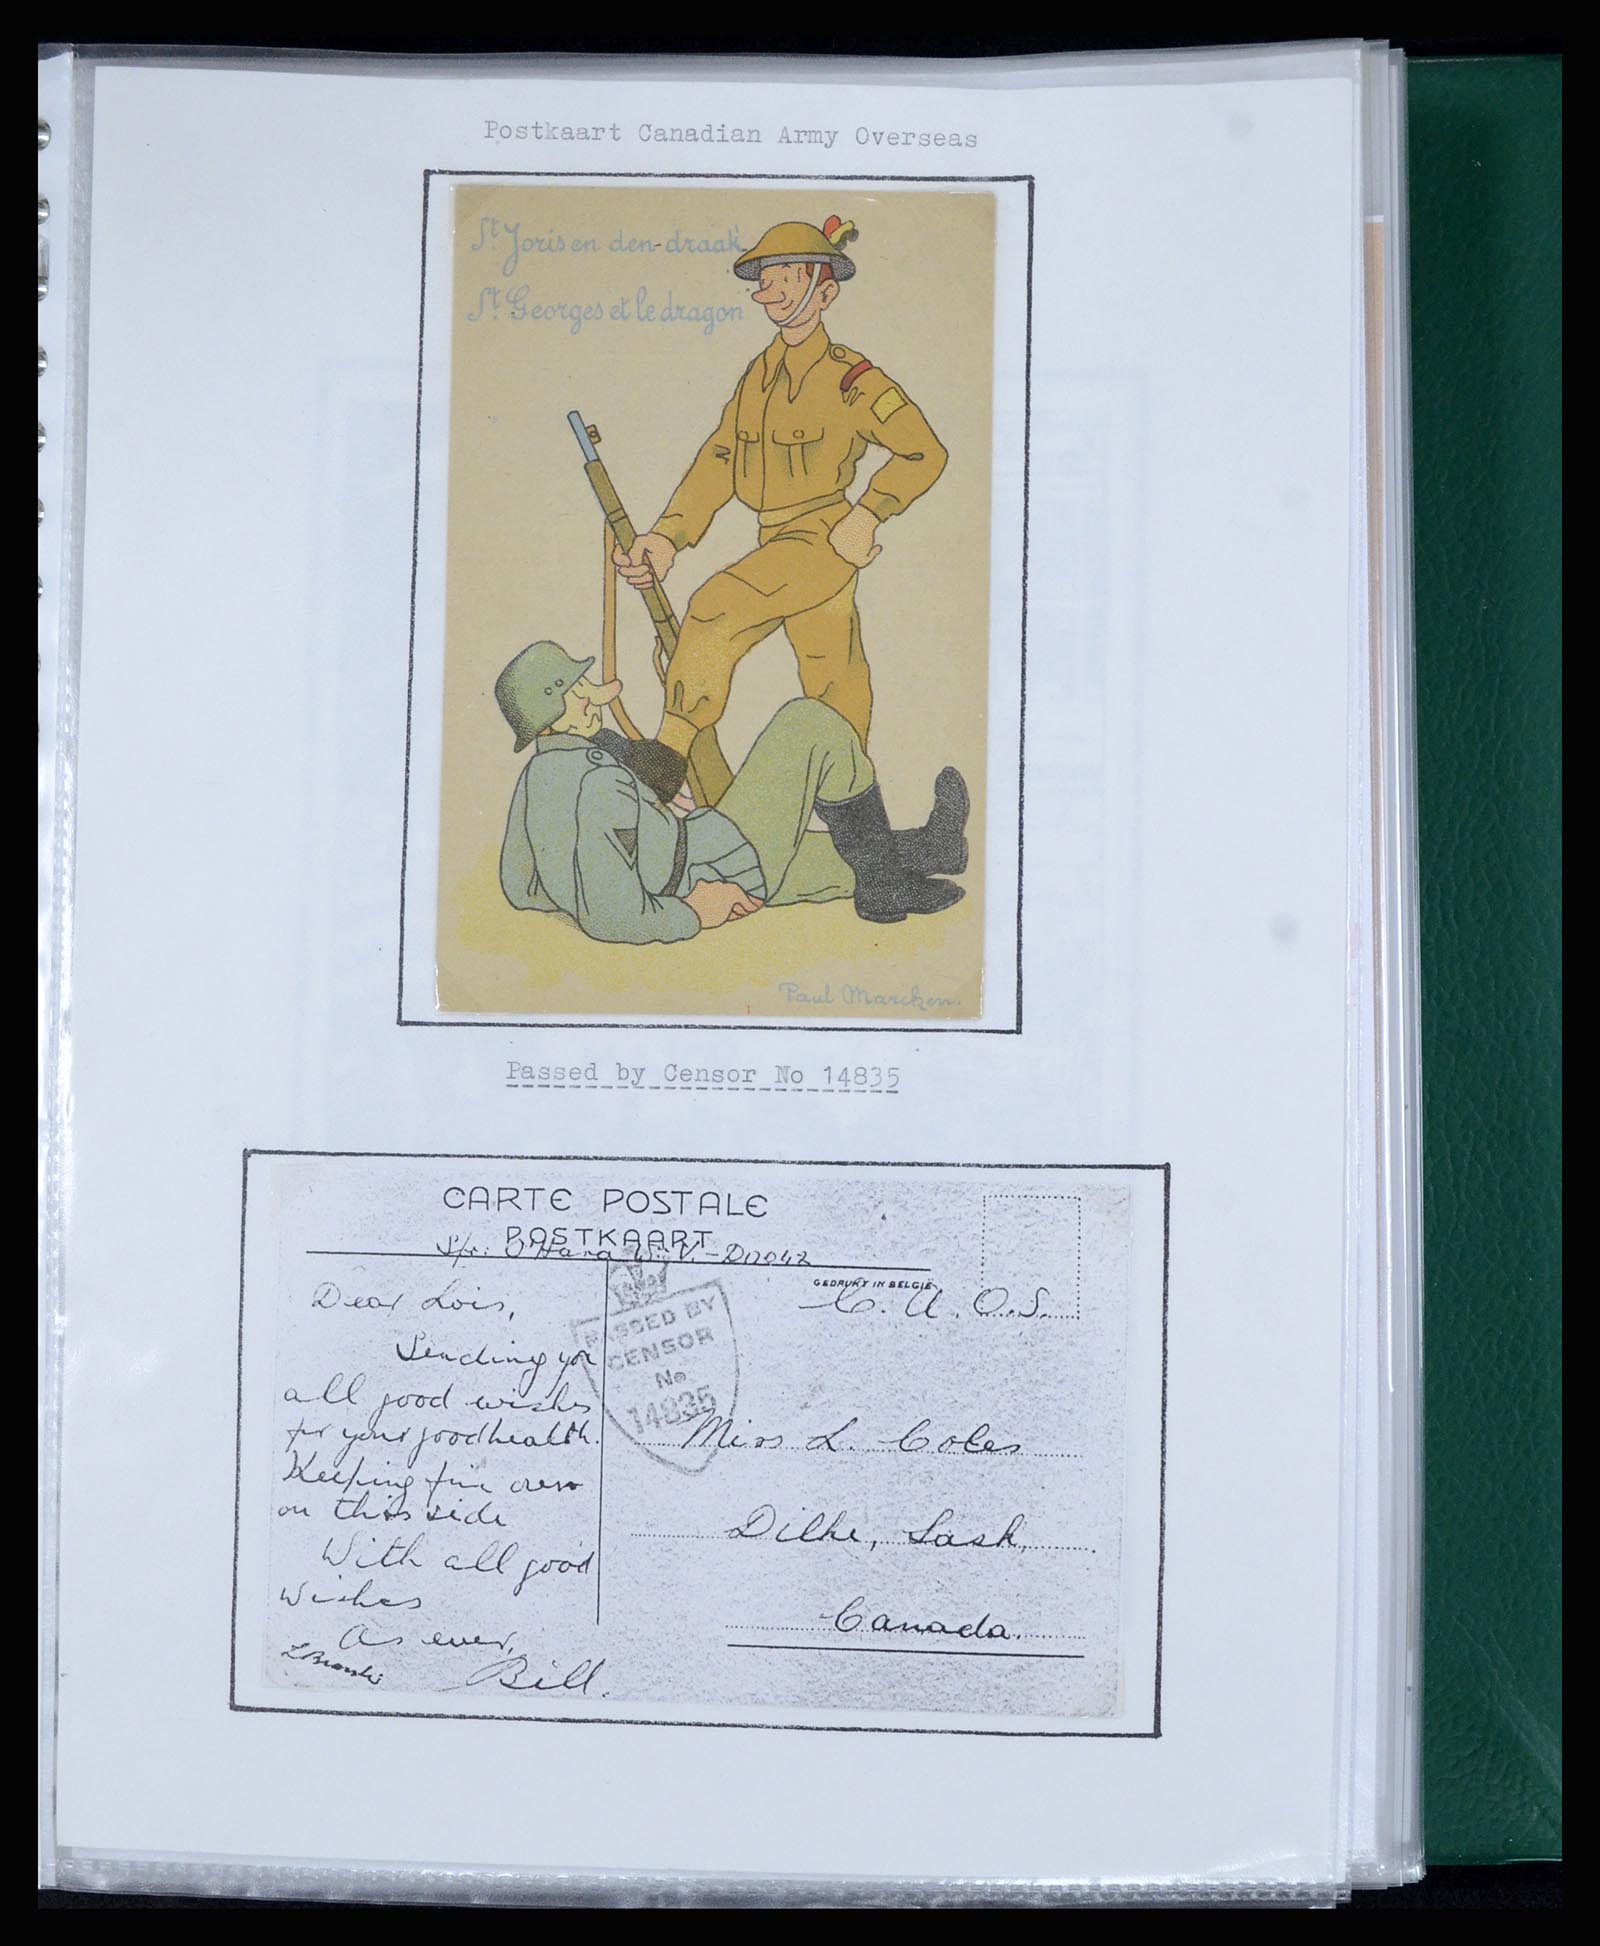 Postkaart Canadian Army Overseas
St Joris en den draak
St Georges et le dragon
Paul Marcken.
Passed by Censor No 14835
CARTE POSTALE
POSTKAART
Spr. O'Hara W. V. -
GEDRUKT IN BELGIE
C. A. O.S.
PASSED BY
CENSOR
No
14835
Dear Lois,
Sending you
all good wishes
for your good health.
Keeping fine over
on this side
With all good
wishes
As ever,
Bill.
Miss L. Coles
Dilke, Sask.
Canada.